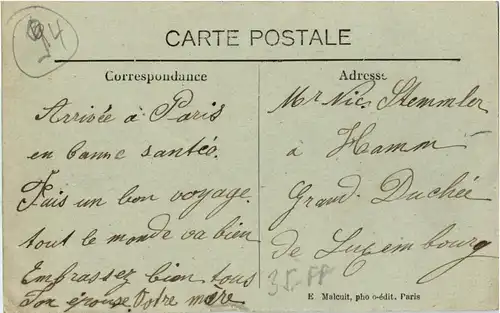 94
CARTE POSTALE
Correspondance
Arrivée à Paris
en banne santée.
Fais un bon voyage.
tout le monde va bien
Embrassez bien tous
Ton épouse. Votre mère
Adresse
Mr Nic. Stemmler
à Hamm
Grand. Duchée
de Luxembourg
35-FF
E. Malcuit, pho o-édit. Paris